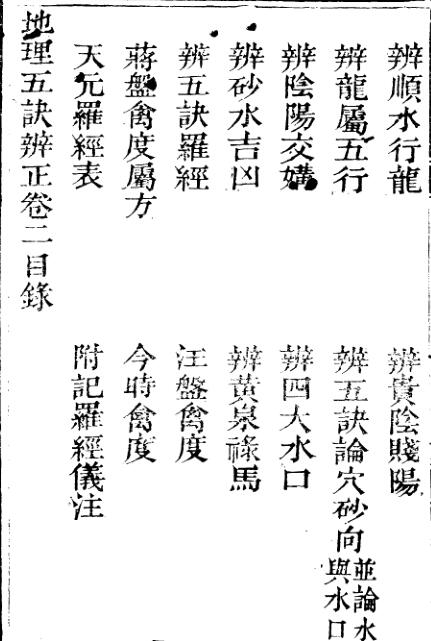 辨順水行龍
辨貴陰賤陽
辨龍屬五行
辨五訣論穴砂向並論水與水口
辨陰陽交媾
辨四大水口
辨砂水吉凶
辨黃泉祿馬
辨五訣羅經
汪盤禽度
蔣盤禽度屬方
今時禽度
天元羅經表
附記羅經儀注
地理五訣辨正卷二目錄